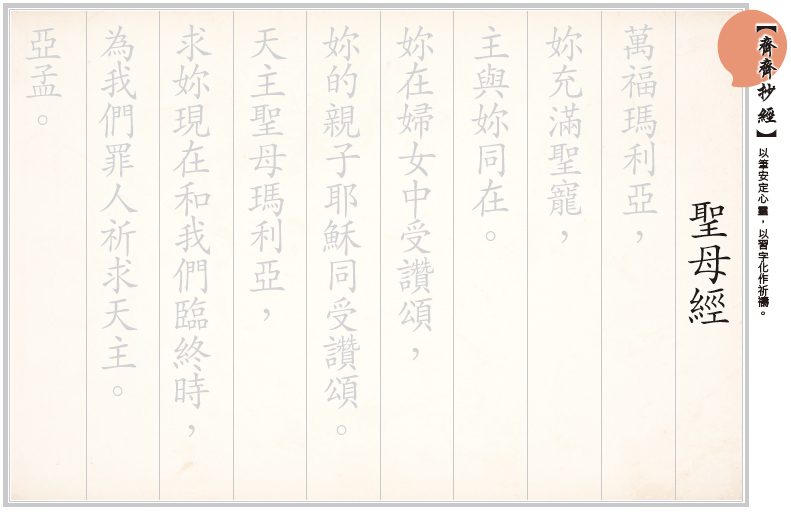 【齊齊抄經】以筆安定心靈，以習字化作祈禱。
聖母經
萬福瑪利亞，
妳充滿聖寵，
主與妳同在。
妳在婦女中受讚頌，
妳的親子耶穌同受讚頌。
天主聖母瑪利亞，
求妳現在和我們臨終時，
為我們罪人祈求天主。
亞孟。